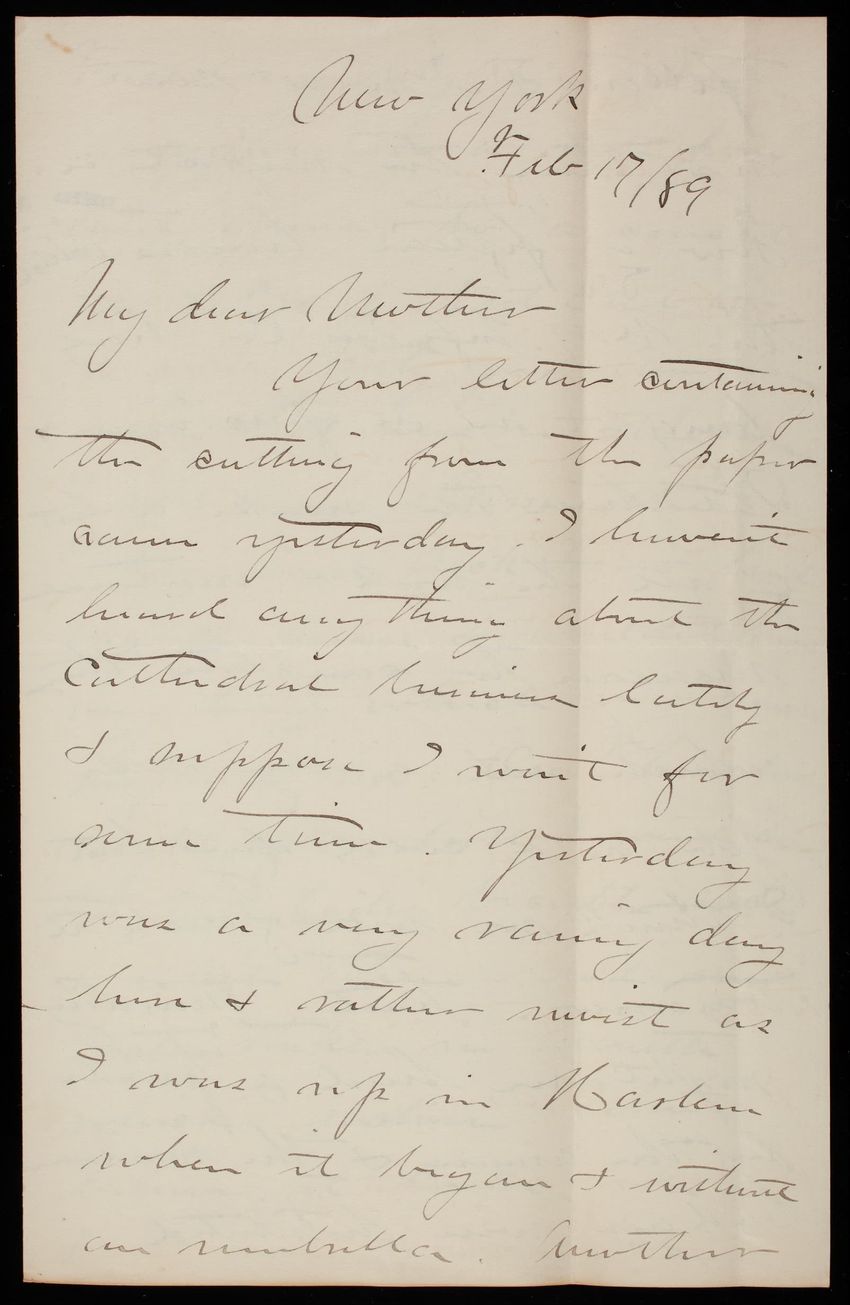 New York
Feb 17/89
My dear Mother
Your letter containing
the cutting from the paper
came yesterday. I haven't
heard anything about the
Cathedral business lately
& suppose I won't for
some time. Yesterday
was a very rainy day
here & rather moist as
I was up in Harlem
when it began & without
an umbrella. Another